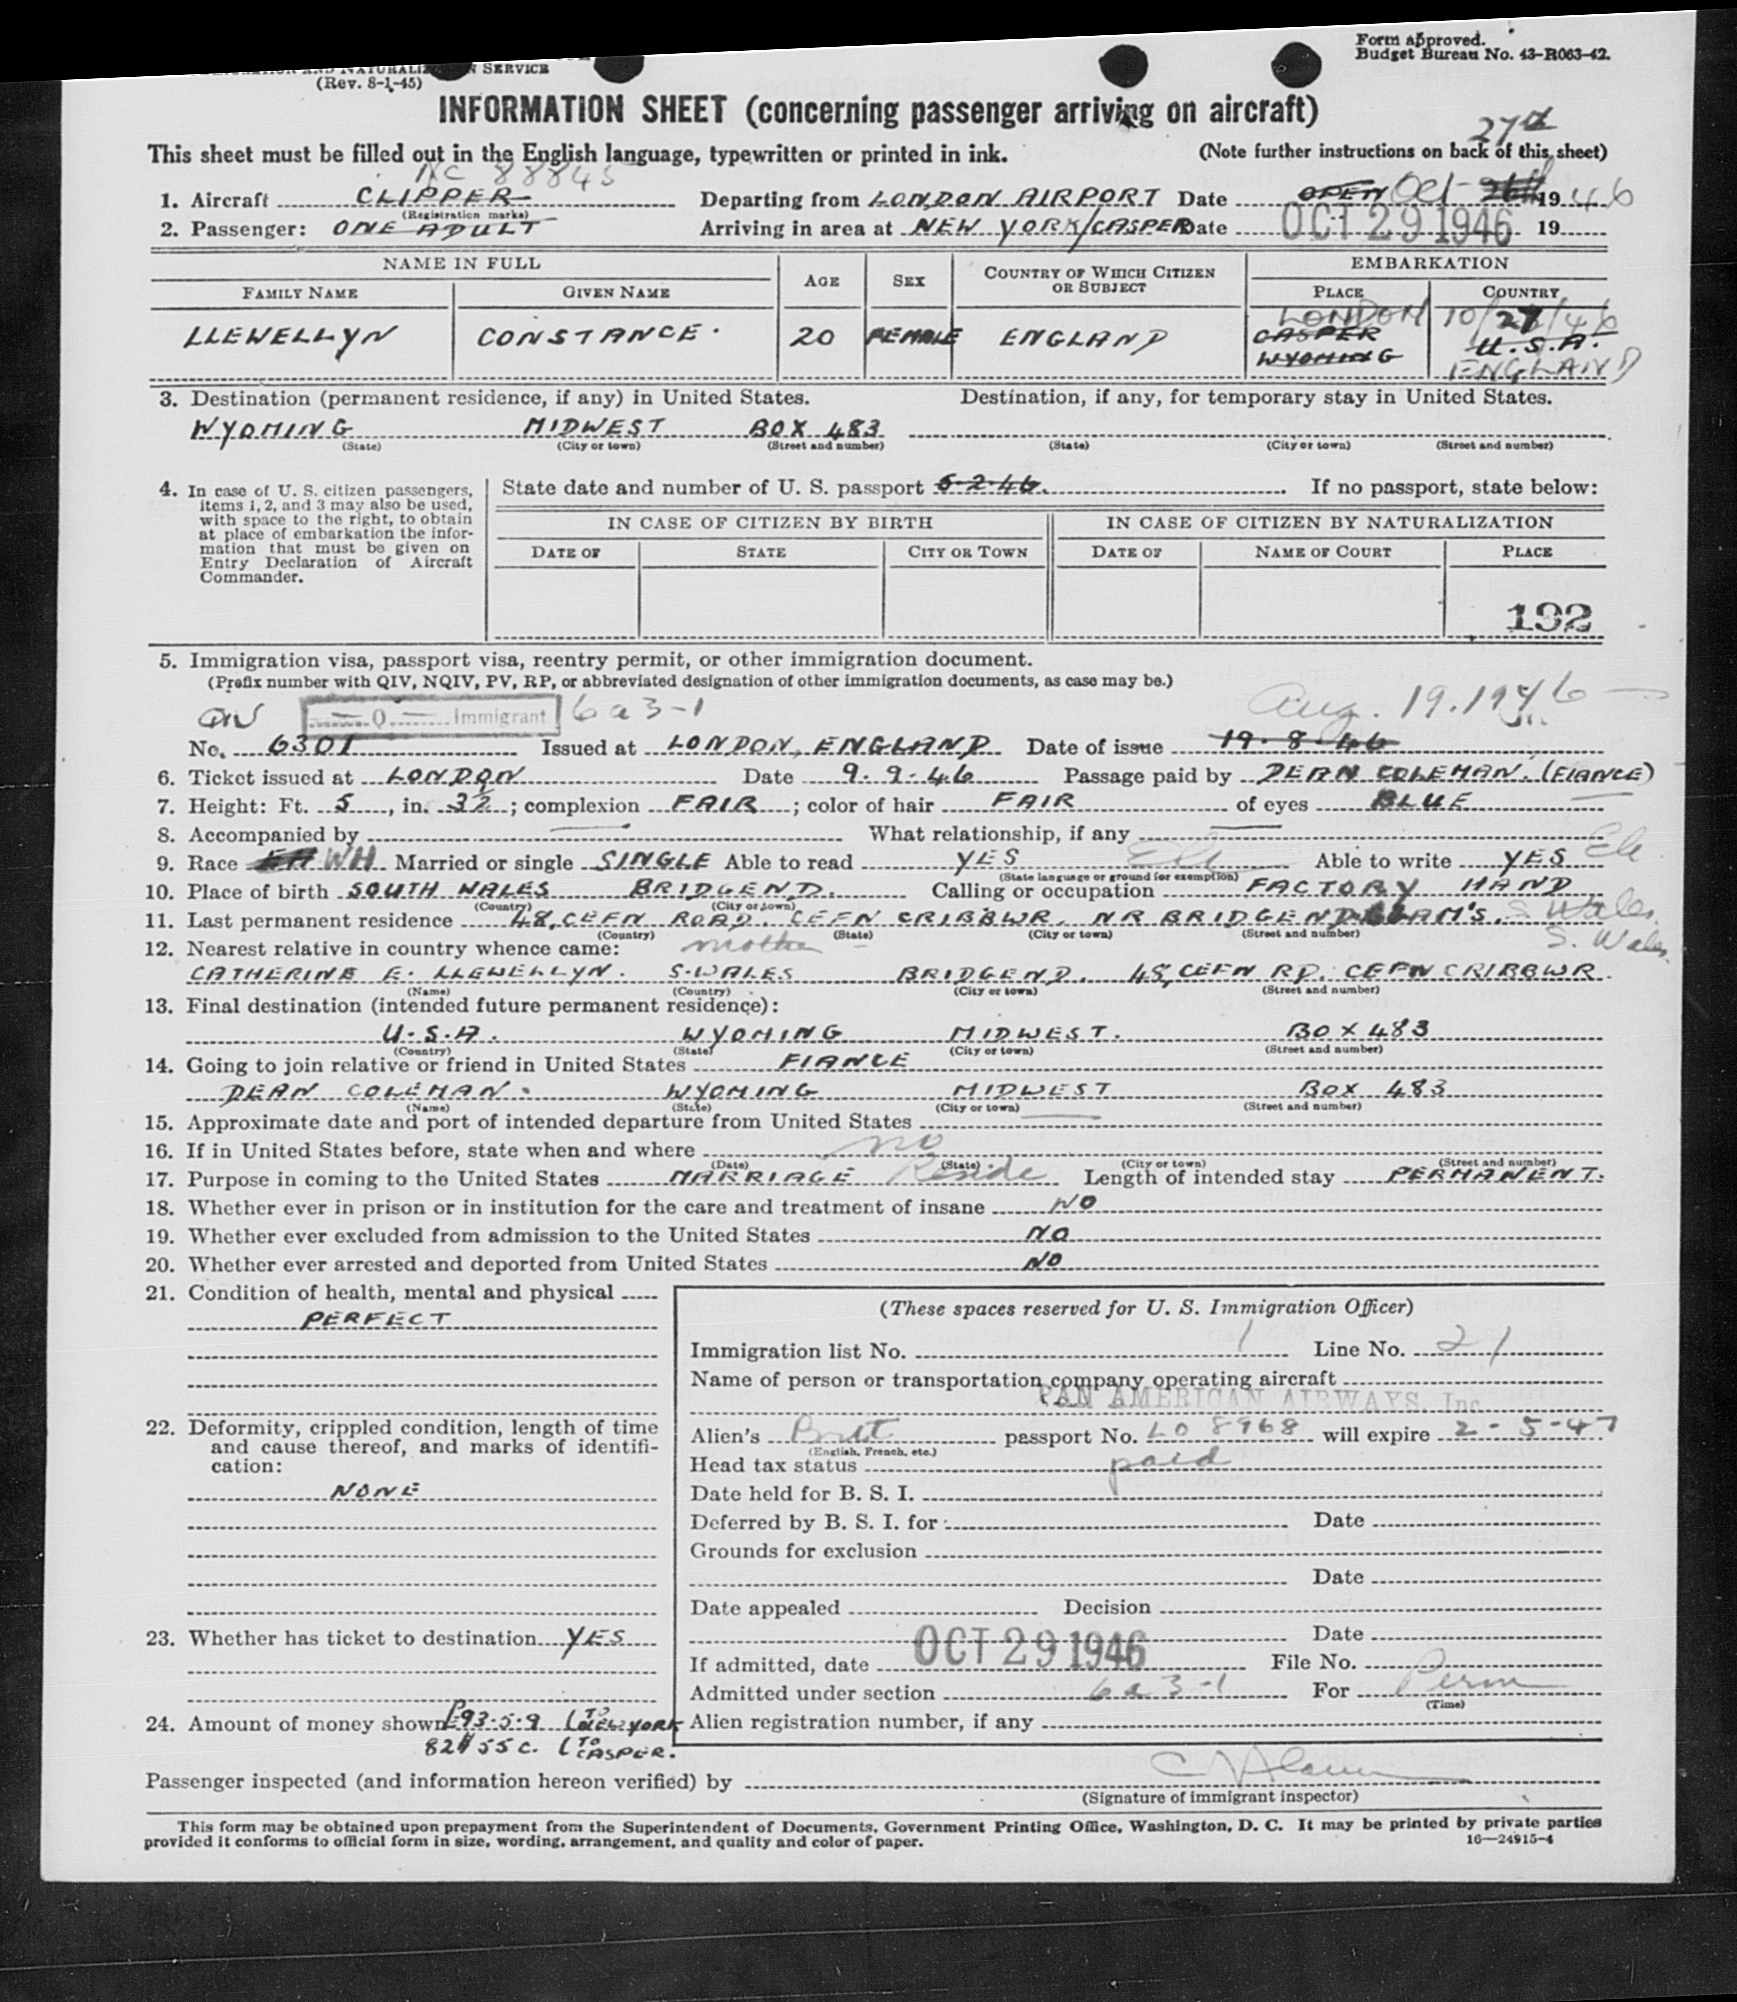 Form approved.
Budget Bureau No. 43-R063-42.
AND NATURALIZATION SERVICE
(Rev. 8-1-45)
INFORMATION SHEET (concerning passenger arriving on aircraft)
27th
This sheet must be filled out in the English language, typewritten or printed in ink. (Note further instructions on back of this sheet)
NC 88845
1. Aircraft CLIPPER Departing from LONDON AIRPORT Date OPEN Oct 26th 1946
(Registration marks)
2. Passenger: ONE ADULT Arriving in area at NEW YORK/CASPER Date OCT 29 1946 19
NAME IN FULL AGE SEX COUNTRY OF WHICH CITIZEN OR SUBJECT EMBARKATION
FAMILY NAME GIVEN NAME PLACE COUNTRY
LONDON 10/27/46
LLEWELLYN CONSTANCE. 20 FEMALE ENGLAND CASPER U.S.A.
WYOMING ENGLAND
3. Destination (permanent residence, if any) in United States. Destination, if any, for temporary stay in United States.
WYOMING MIDWEST BOX 483
(State) (City or town) (Street and number) (State) (City or town) (Street and number)
4. In case of U. S. citizen passengers, items 1, 2, and 3 may also be used, with space to the right, to obtain at place of embarkation the information that must be given on Entry Declaration of Aircraft Commander.
State date and number of U. S. passport 6-2-46. If no passport, state below:
IN CASE OF CITIZEN BY BIRTH IN CASE OF CITIZEN BY NATURALIZATION
DATE OF STATE CITY OR TOWN DATE OF NAME OF COURT PLACE
192
5. Immigration visa, passport visa, reentry permit, or other immigration document.
(Prefix number with QIV, NQIV, PV, RP, or abbreviated designation of other immigration documents, as case may be.)
QIV Q Immigrant 6a3-1 Aug. 19. 1946
No. 6301 Issued at LONDON, ENGLAND Date of issue 19-8-46
6. Ticket issued at LONDON Date 9.9.46 Passage paid by DEAN COLEMAN. (FIANCE)
7. Height: Ft. 5, in. 3½; complexion FAIR; color of hair FAIR of eyes BLUE
8. Accompanied by What relationship, if any
9. Race WH Married or single SINGLE Able to read YES Able to write YES
(State language or ground for exemption)
10. Place of birth SOUTH WALES BRIDGEND. Calling or occupation FACTORY HAND
(Country) (City or town)
11. Last permanent residence 48, CEFN ROAD. CEFN CRIBBWR. NR BRIDGEND. GLAM'S. S Wales.
(Country) (State) (City or town) (Street and number)
12. Nearest relative in country whence came: mother S. Wales.
CATHERINE E. LLEWELLYN. S. WALES BRIDGEND. 48, CEFN RD. CEFN CRIBBWR.
(Name) (Country) (City or town) (Street and number)
13. Final destination (intended future permanent residence):
U.S.A. WYOMING MIDWEST. BOX 483
(Country) (State) (City or town) (Street and number)
14. Going to join relative or friend in United States FIANCE
DEAN COLEMAN. WYOMING MIDWEST BOX 483
(Name) (State) (City or town) (Street and number)
15. Approximate date and port of intended departure from United States
16. If in United States before, state when and where no
(Date) (State) (City or town) (Street and number)
17. Purpose in coming to the United States MARRIAGE Reside Length of intended stay PERMANENT.
18. Whether ever in prison or in institution for the care and treatment of insane NO
19. Whether ever excluded from admission to the United States NO
20. Whether ever arrested and deported from United States NO
21. Condition of health, mental and physical
PERFECT
22. Deformity, crippled condition, length of time and cause thereof, and marks of identification:
NONE
23. Whether has ticket to destination YES
24. Amount of money shown £93-5-9 (TO NEW YORK
82$ 55c. (TO CASPER.
(These spaces reserved for U. S. Immigration Officer)
Immigration list No. 1 Line No. 21
Name of person or transportation company operating aircraft
PAN AMERICAN AIRWAYS, Inc
Alien's Brit passport No. LO 8968 will expire 2-5-47
(English, French, etc.)
Head tax status paid
Date held for B. S. I.
Deferred by B. S. I. for: Date
Grounds for exclusion
Date
Date appealed Decision
Date
If admitted, date OCT 29 1946 File No.
Admitted under section 6a3-1 For Perm
(Time)
Alien registration number, if any
Passenger inspected (and information hereon verified) by
(Signature of immigrant inspector)
This form may be obtained upon prepayment from the Superintendent of Documents, Government Printing Office, Washington, D. C. It may be printed by private parties
provided it conforms to official form in size, wording, arrangement, and quality and color of paper. 16—24915-4